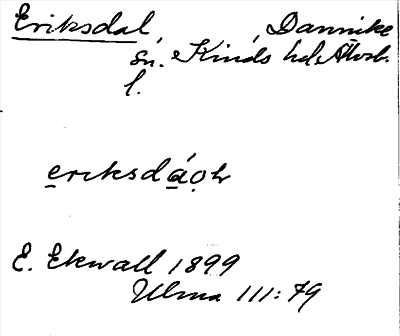 Eriksdal, Dannike
sn. Kinds hd. Älvsb.
l.
eriksdáọƖ
E. Ekwall 1899
Ulma 111:79